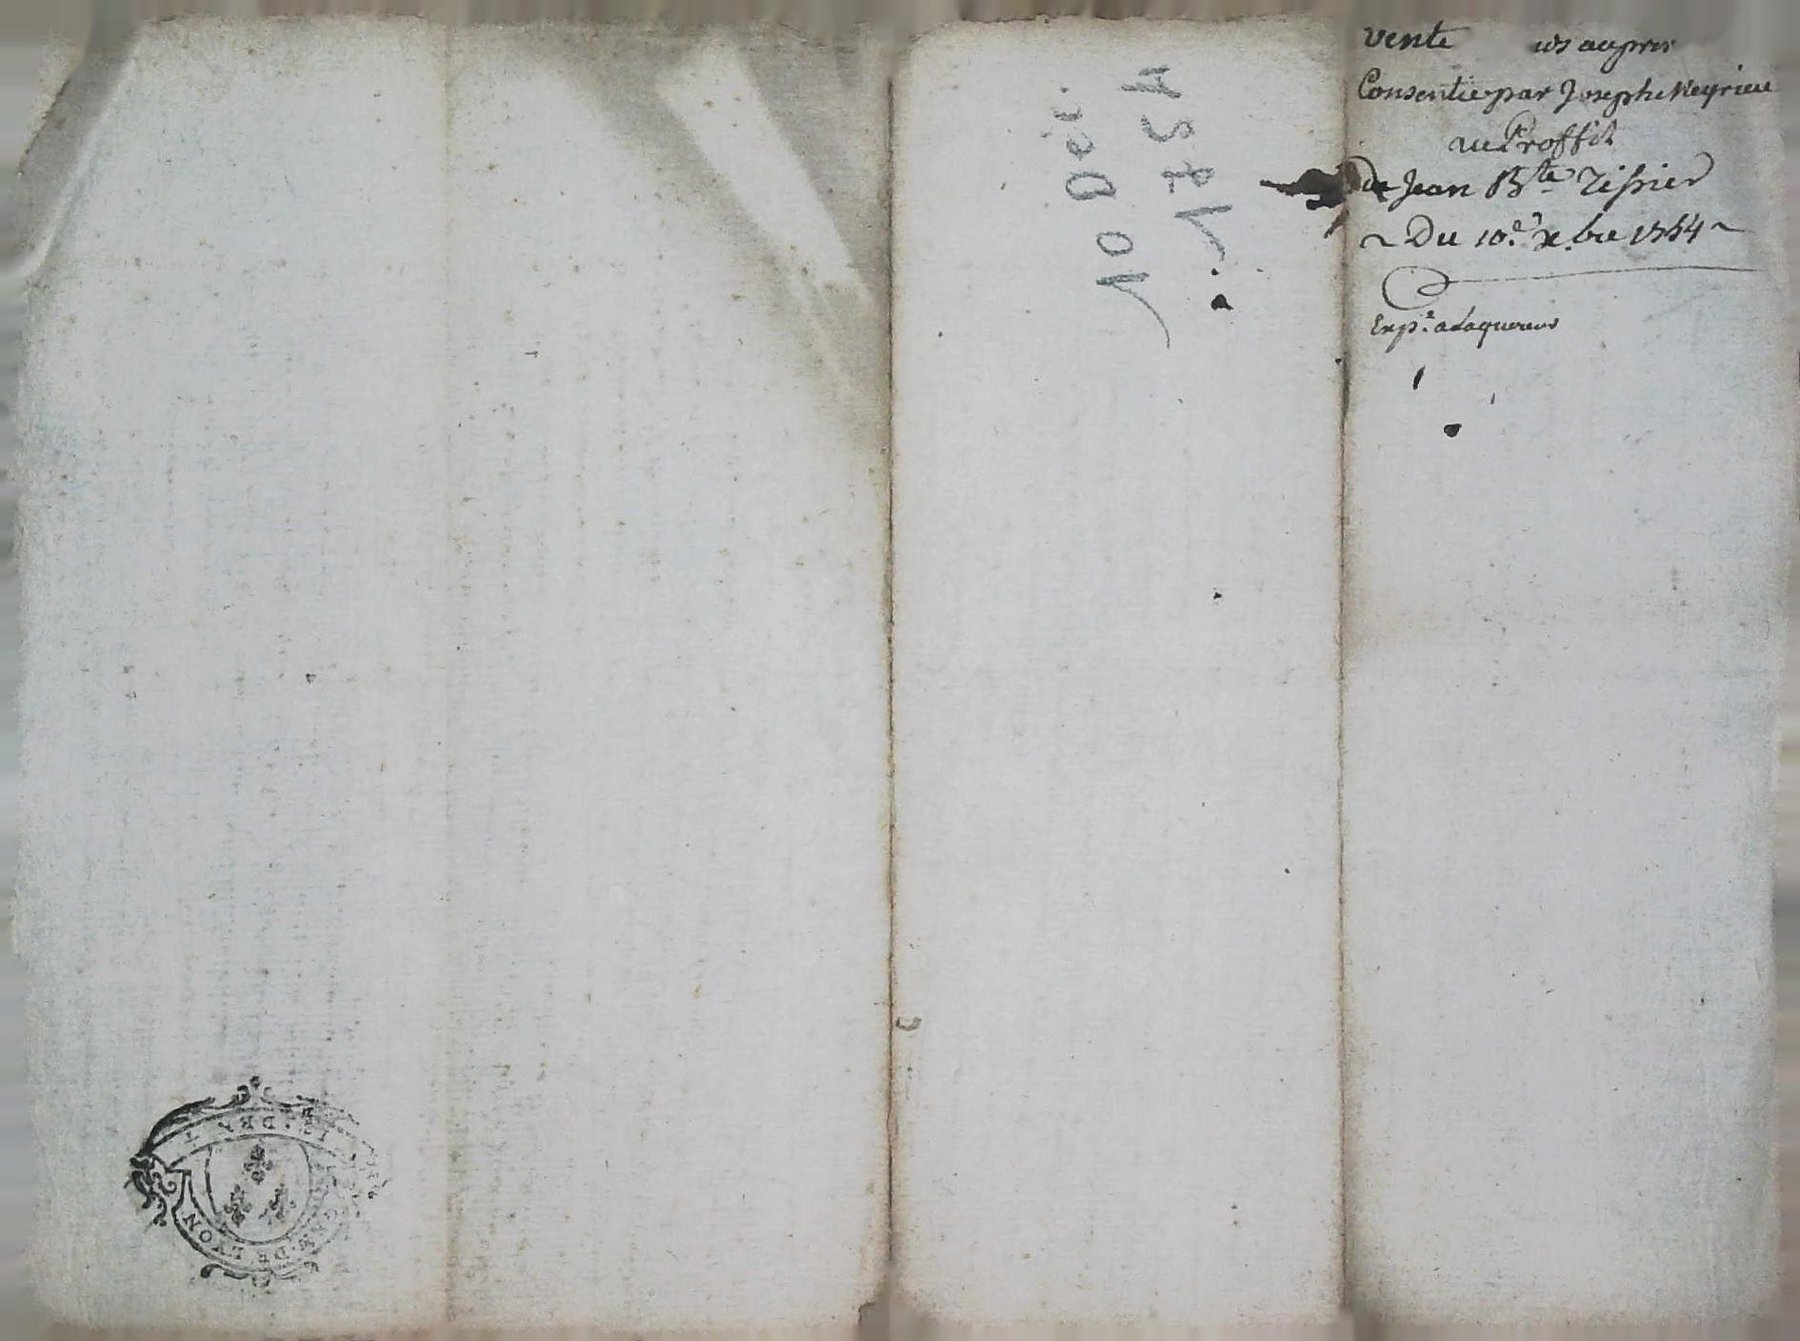 vente
Consentie par Joseph Meyrieu
au Proffit
de Jean Bte Tissier
~ Du 10e xbre 1754 ~
Expe.
10 Déc.
1754
DE LYON